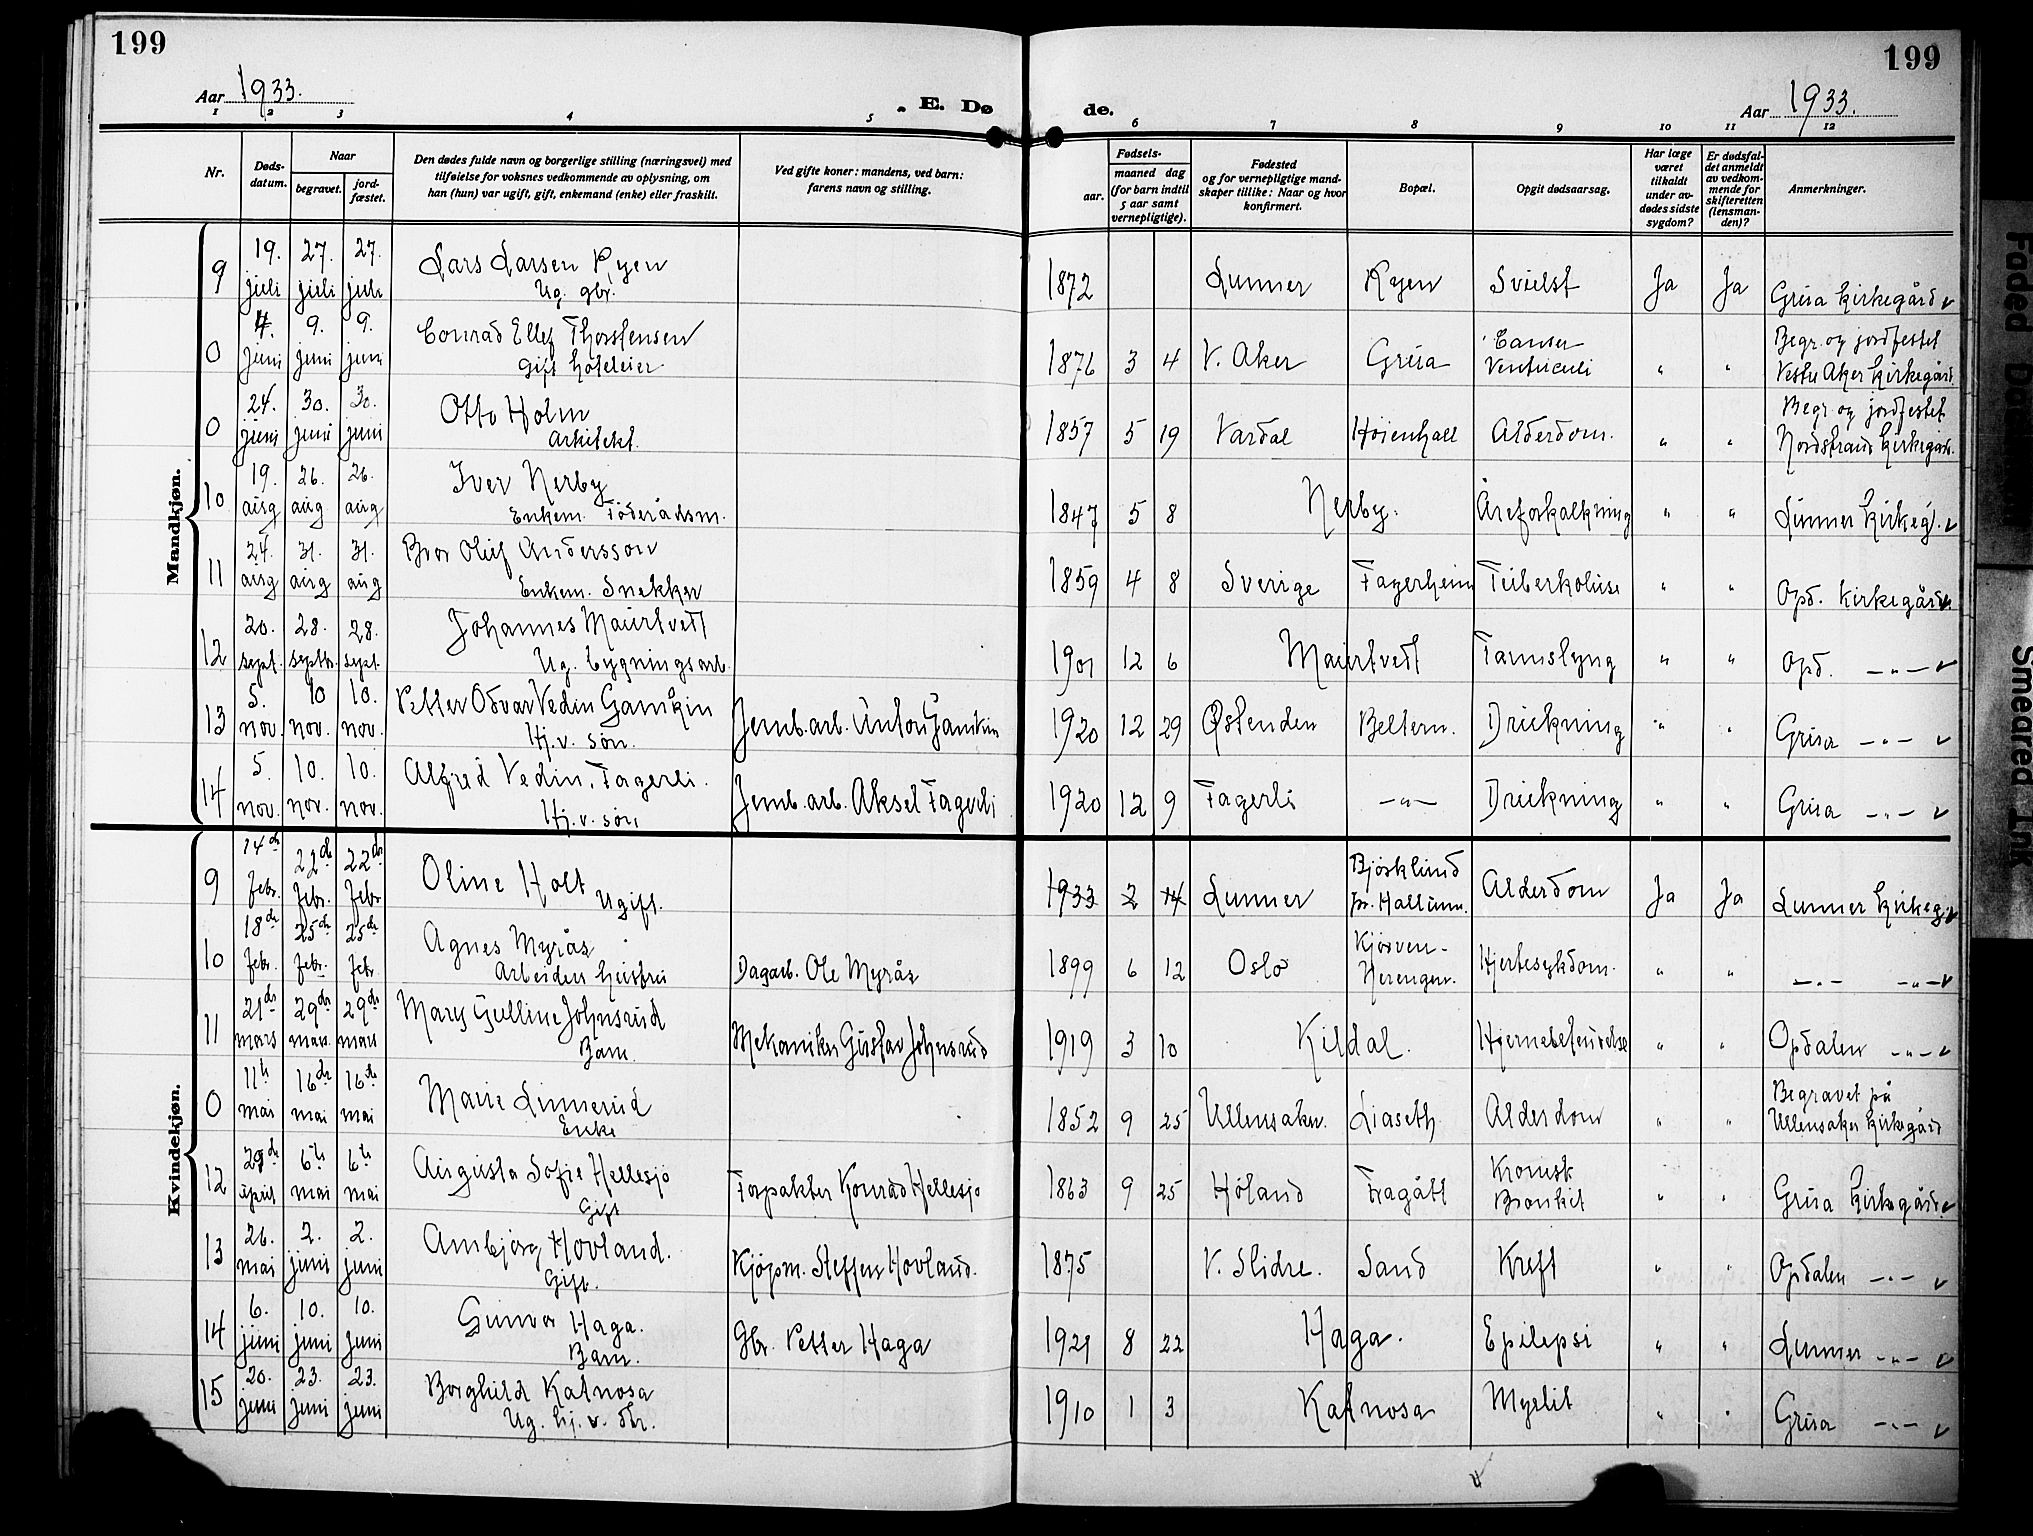 199
199
Aar 1933.
E. Dø
de.
Aar 1933.
1 2 3 4 5 6 7 8 9 10 11 12
Nr.
Døds-
datum.
Naar
begravet.
jord-
fæstet.
Den dødes fulde navn og borgerlige stilling (næringsvei) med
tilføielse for voksnes vedkommende av oplysning, om
han (hun) var ugift, gift, enkemand (enke) eller fraskilt.
Ved gifte koner: mandens, ved barn:
farens navn og stilling.
Fødsels-
aar.
maaned dag
(for barn indtil
5 aar samt
vernepligtige).
Fødested
og for vernepligtige mand-
skaper tillike: Naar og hvor
konfirmert.
Bopæl.
Opgit dødsaarsag.
Har læge
været
tilkaldt
under av-
dødes sidste
sygdom?
Er dødsfal-
det anmeldt
av vedkom-
mende for
skifteretten
(lensman-
den)?
Anmerkninger.
Mandkjøn.
9 19. juli 27. juli 27. juli Lars Larsen Ryen 1872 Lunner Ryen Ja Ja Grua kirkegård
Ug. gbr.
0 4. juni 9. juni 9. juni Conrad Ellef Thorstensen 1876 3 4 V. Aker Grua Cancer Ventriculi " " Begr. og jordfestet
Gift hoteleier Vestre Aker kirkegård
0 24. juni 30. juni 30. juni Otto Holm 1857 5 19 Vardal Høienhall Alderdom. " " Begr. og jordfestet
Arkitekt. Nordstrand kirkegård.
10 19. aug 26. aug 26. aug Iver Nerby 1847 5 8 Nerby. Åreforkalkning " " Lunner kirkeg.
Enkem. Føderådsm.
11 24. aug 31. aug 31. aug Bror Oluf Andersson 1859 4 8 Sverige Fagerheim Tuberkoluse " " Opd. kirkegård
Enkem. Snekker
12 20. sept. 28. septr. 28. sept Johannes Maurtvedt 1901 12 6 Maurtvedt Tarmslyng " " Opd. — " —
Ug. bygningsarb.
13 5. nov. 10 nov. 10. nov. Petter Odvar Vedin Gamkin Jernb.arb. Anton Gamkin 1920 12 29 Østenden Beltern. Drukning " " Grua — " —
Hj.v. søn.
14 5. nov. 10. nov. 10. nov. Alfred Vedin. Fagerli. Jernb.arb. Aksel Fagerli 1920 12 9 Fagerli — " — Drukning " " Grua — " —
Hj.v. søn
Kvindekjøn.
9 14de febr. 22de febr. 22de febr Oline Holt 1933 2 14 Lunner Bjørklund pr. Hallum. Alderdom Ja Ja Lunner kirkeg.
Ugift.
10 18de febr. 25de febr. 25de febr Agnes Myrås Dagarb. Ole Myrås 1899 6 12 Oslo Kjørven- Herengen. Hjertesykdom. " " — " — — " —
Arbeiders hustru
11 21de mars 29de mars 29de mars Mary Gulline Johnsrud Mekaniker Gustav Johnsrud 1919 3 10 Kildal. Hjernebetendelse " " Opdalen — " —
Barn.
0 11te mai 16de mai 16de mai Marie Linnerud 1852 9 25 Ullensaker. Liaseth Alderdom " " Begravet på
Enke Ullensaker kirkegård
12 april 6te mai 6te mai Augusta Sofie Hellesjø Forpakter Konrad Hellesjø 1863 9 25 Høland Fragått Kronisk Bronkit " " Grua kirkegård
Gift
13 26. mai 2. juni 2. juni Ambjørg Hovland. Kjøpm. Steffen Hovland. 1875 V. Slidre. Sand Kreft " " Opdalen — " —
Gift.
14 6. juni 10. juni 10. juni Gunvor Haga. Gbr. Petter Haga 1921 8 22 Haga. Epilepsi " " Lunner — " —
Barn.
15 20. juni 23. juni 23. juni Borghild Katnosa 1910 1 3 Katnosa Myelit " " Grua — " —
Ug. hj. v. dtr.
Faded
Smeared Ink